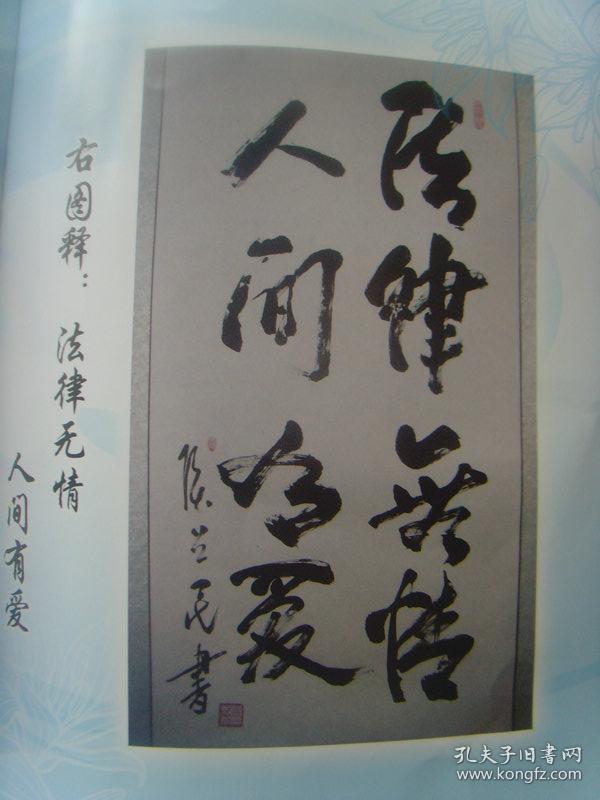 法律無情
人间有愛
民書
右图释：法律无情
人间有爱
孔夫子旧书网
www.kongfz.com